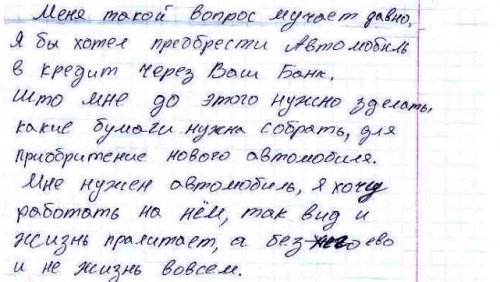 Меня такой вопрос мучает давно,
Я бы хотел преобрести Автомобиль
в кредит через Ваш Банк.
Што мне до этого нужно зделать,
какие бумаги нужна собрать, для
приобритение нового автомобиля.
Мне нужен автомобиль, я хочу
работать на нём, так вид и
жизнь пралитает, а без ево
и не жизнь вовсем.